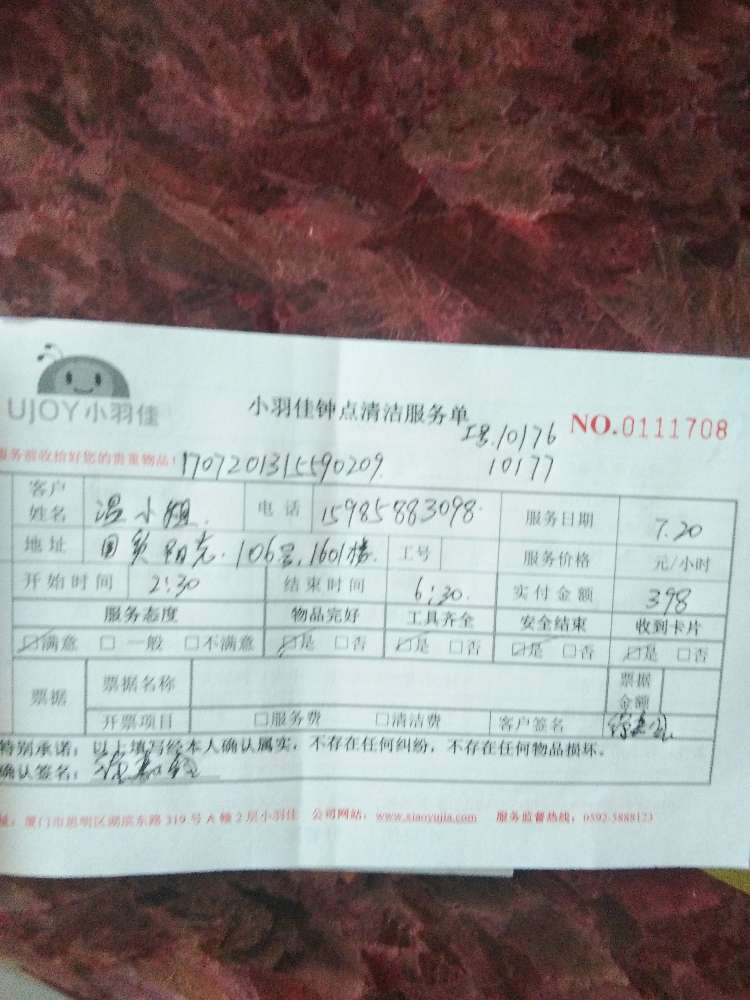 UJOY小羽佳
小羽佳钟点清洁服务单
工号.10176
10177
NO.0111708
服务前收拾好您的贵重物品！
1707201315590209
客户姓名 温小姐. 电话 15985883098. 服务日期 7.20
地址 国贸阳光.106号,1601楼 工号 服务价格 元/小时
开始时间 2:30 结束时间 6:30 实付金额 398
服务态度 物品完好 工具齐全 安全结束 收到卡片
☑满意 □一般 □不满意 ☑是 □否 ☑是 □否 ☑是 □否 ☑是 □否
票据 票据名称 票据金额
开票项目 □服务费 □清洁费 客户签名
特别承诺：以上填写经本人确认属实，不存在任何纠纷，不存在任何物品损坏。
确认签名：
厦门市思明区湖滨东路319号A幢2层小羽佳 公司网站：www.xiaoyujia.com 服务监督热线：0592-5888123